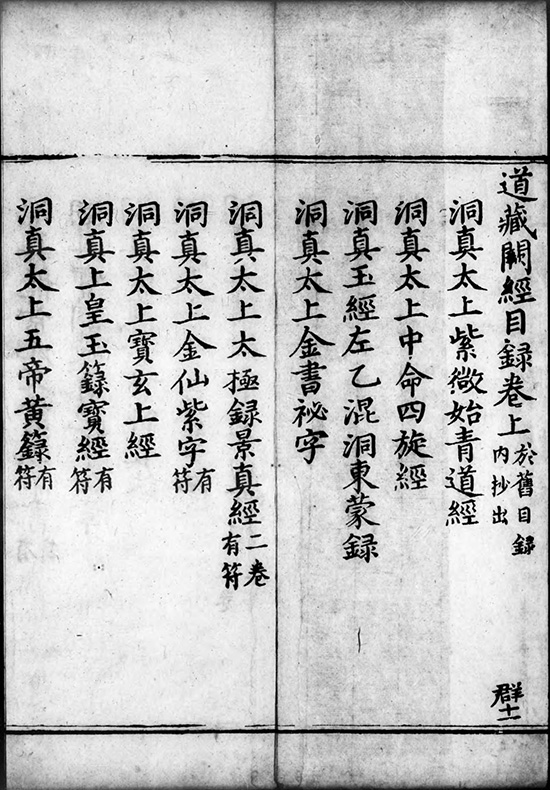 道藏闕經目録卷上 於舊目録内抄出
群十一
洞真太上紫微始青道經
洞真太上中命四旋經
洞真玉經左乙混洞東蒙録
洞真太上金書祕字
洞真太上太極録景真經 二卷有符
洞真太上金仙紫字 有符
洞真太上寶玄上經
洞真上皇玉籙寶經 有符
洞真太上五帝黄籙 有符